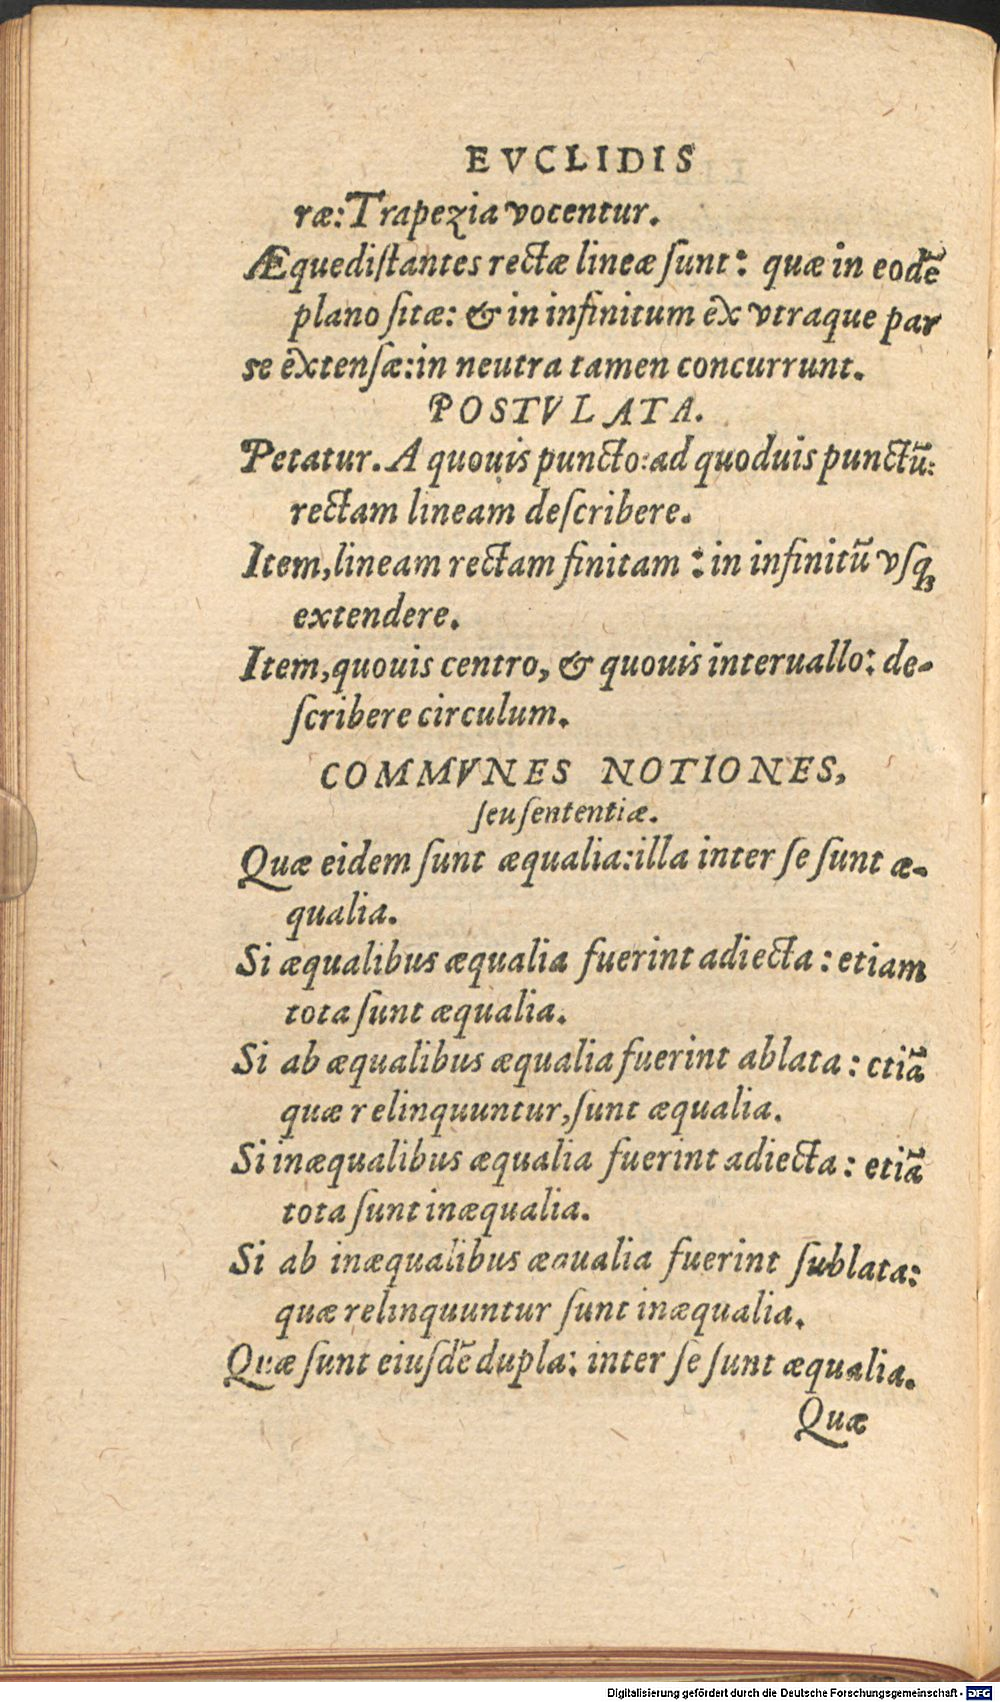 EVCLIDIS
ræ: Trapezia vocentur.
Æquedistantes rectæ lineæ sunt: quæ in eodē
plano sitæ: & in infinitum ex vtraque par
se extensæ: in neutra tamen concurrunt.
POSTVLATA.
Petatur. A quouis puncto: ad quoduis punctū:
rectam lineam describere.
Item, lineam rectam finitam: in infinitū vsq;
extendere.
Item, quouis centro, & quouis interuallo: de-
scribere circulum.
COMMVNES NOTIONES,
seu sententiæ.
Quæ eidem sunt æqualia: illa inter se sunt æ-
qualia.
Si æqualibus æqualia fuerint adiecta: etiam
tota sunt æqualia.
Si ab æqualibus æqualia fuerint ablata: etiā
quæ relinquuntur, sunt æqualia.
Si inæqualibus æqualia fuerint adiecta: etiā
tota sunt inæqualia.
Si ab inæqualibus æqualia fuerint sublata:
quæ relinquuntur sunt inæqualia.
Quæ sunt eiusdē dupla: inter se sunt æqualia.
Quæ
Digitalisierung gefördert durch die Deutsche Forschungsgemeinschaft - DFG